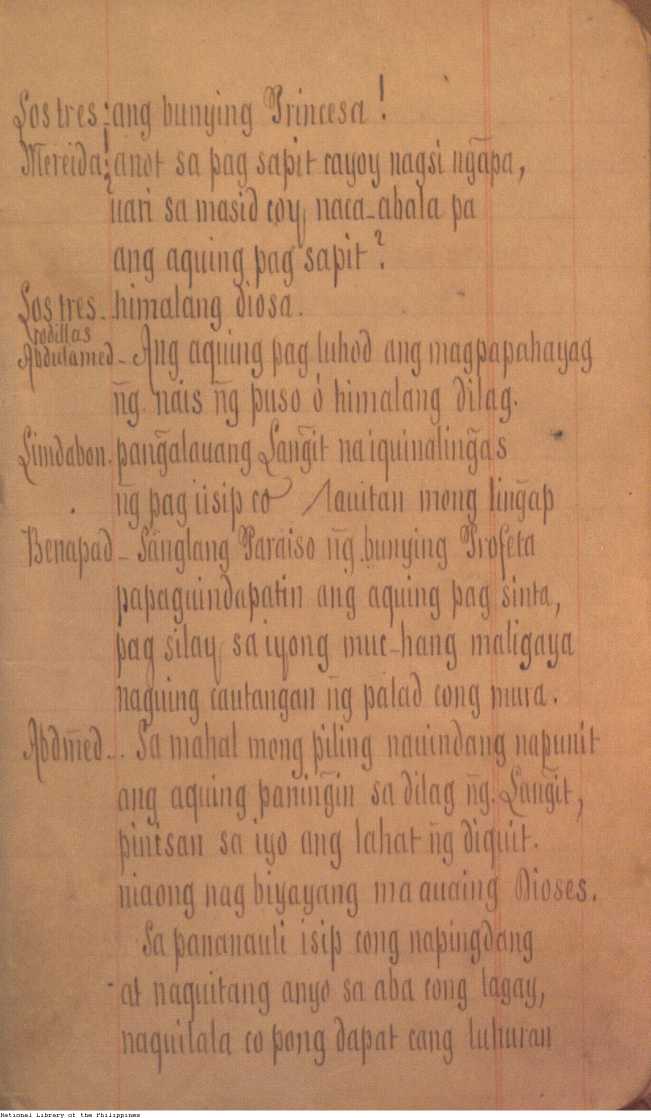 Los tres: ang bunying Princesa!
Mereida: ¿anot sa pag sapit cayoy nagsi ng̃apa,
uari sa masid coy, naca-abala pa
ang aquing pag sapit?
Los tres - himalang diosa.
rodillas
Abdulamed - Ang aquing pag luhod ang magpapahayag
ñg nais ñg puso ó himalang dilag.
Limdabon. pang̃alauang Lang̃it na iquinaling̃as
ñg pag iisip co lauitan mong ling̃ap
Benapad - Sanglang Paraiso ñg bunying Profeta
papaguindapatin ang aquing pag sinta,
pag silay sa iyong muc-hang maligaya
naguing cautangan ñg palad cong mura.
Abdm̃ed - Sa mahal mong piling nauindang napunit
ang aquing paning̃in sa dilag ñg Lang̃it,
pintsan sa iyo ang lahat ñg diquit.
niaong nag biyayang ma auaing Dioses.
Sa pananauli isip cong napingdang
at naquitang anyo sa aba cong lagay,
naquilala co pong dapat cang luhuran
National Library of the Philippines